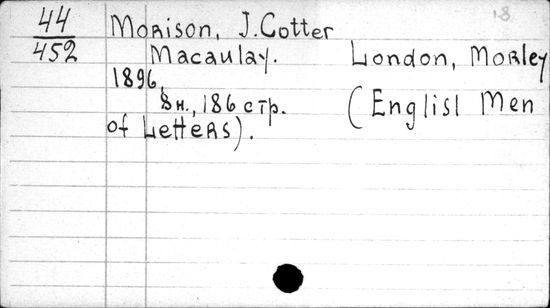 18
44
452
Morison, J. Cotter
Macaulay. London, Morley
1896,
8н., 186 стр. (Englisl Men
of Letters).